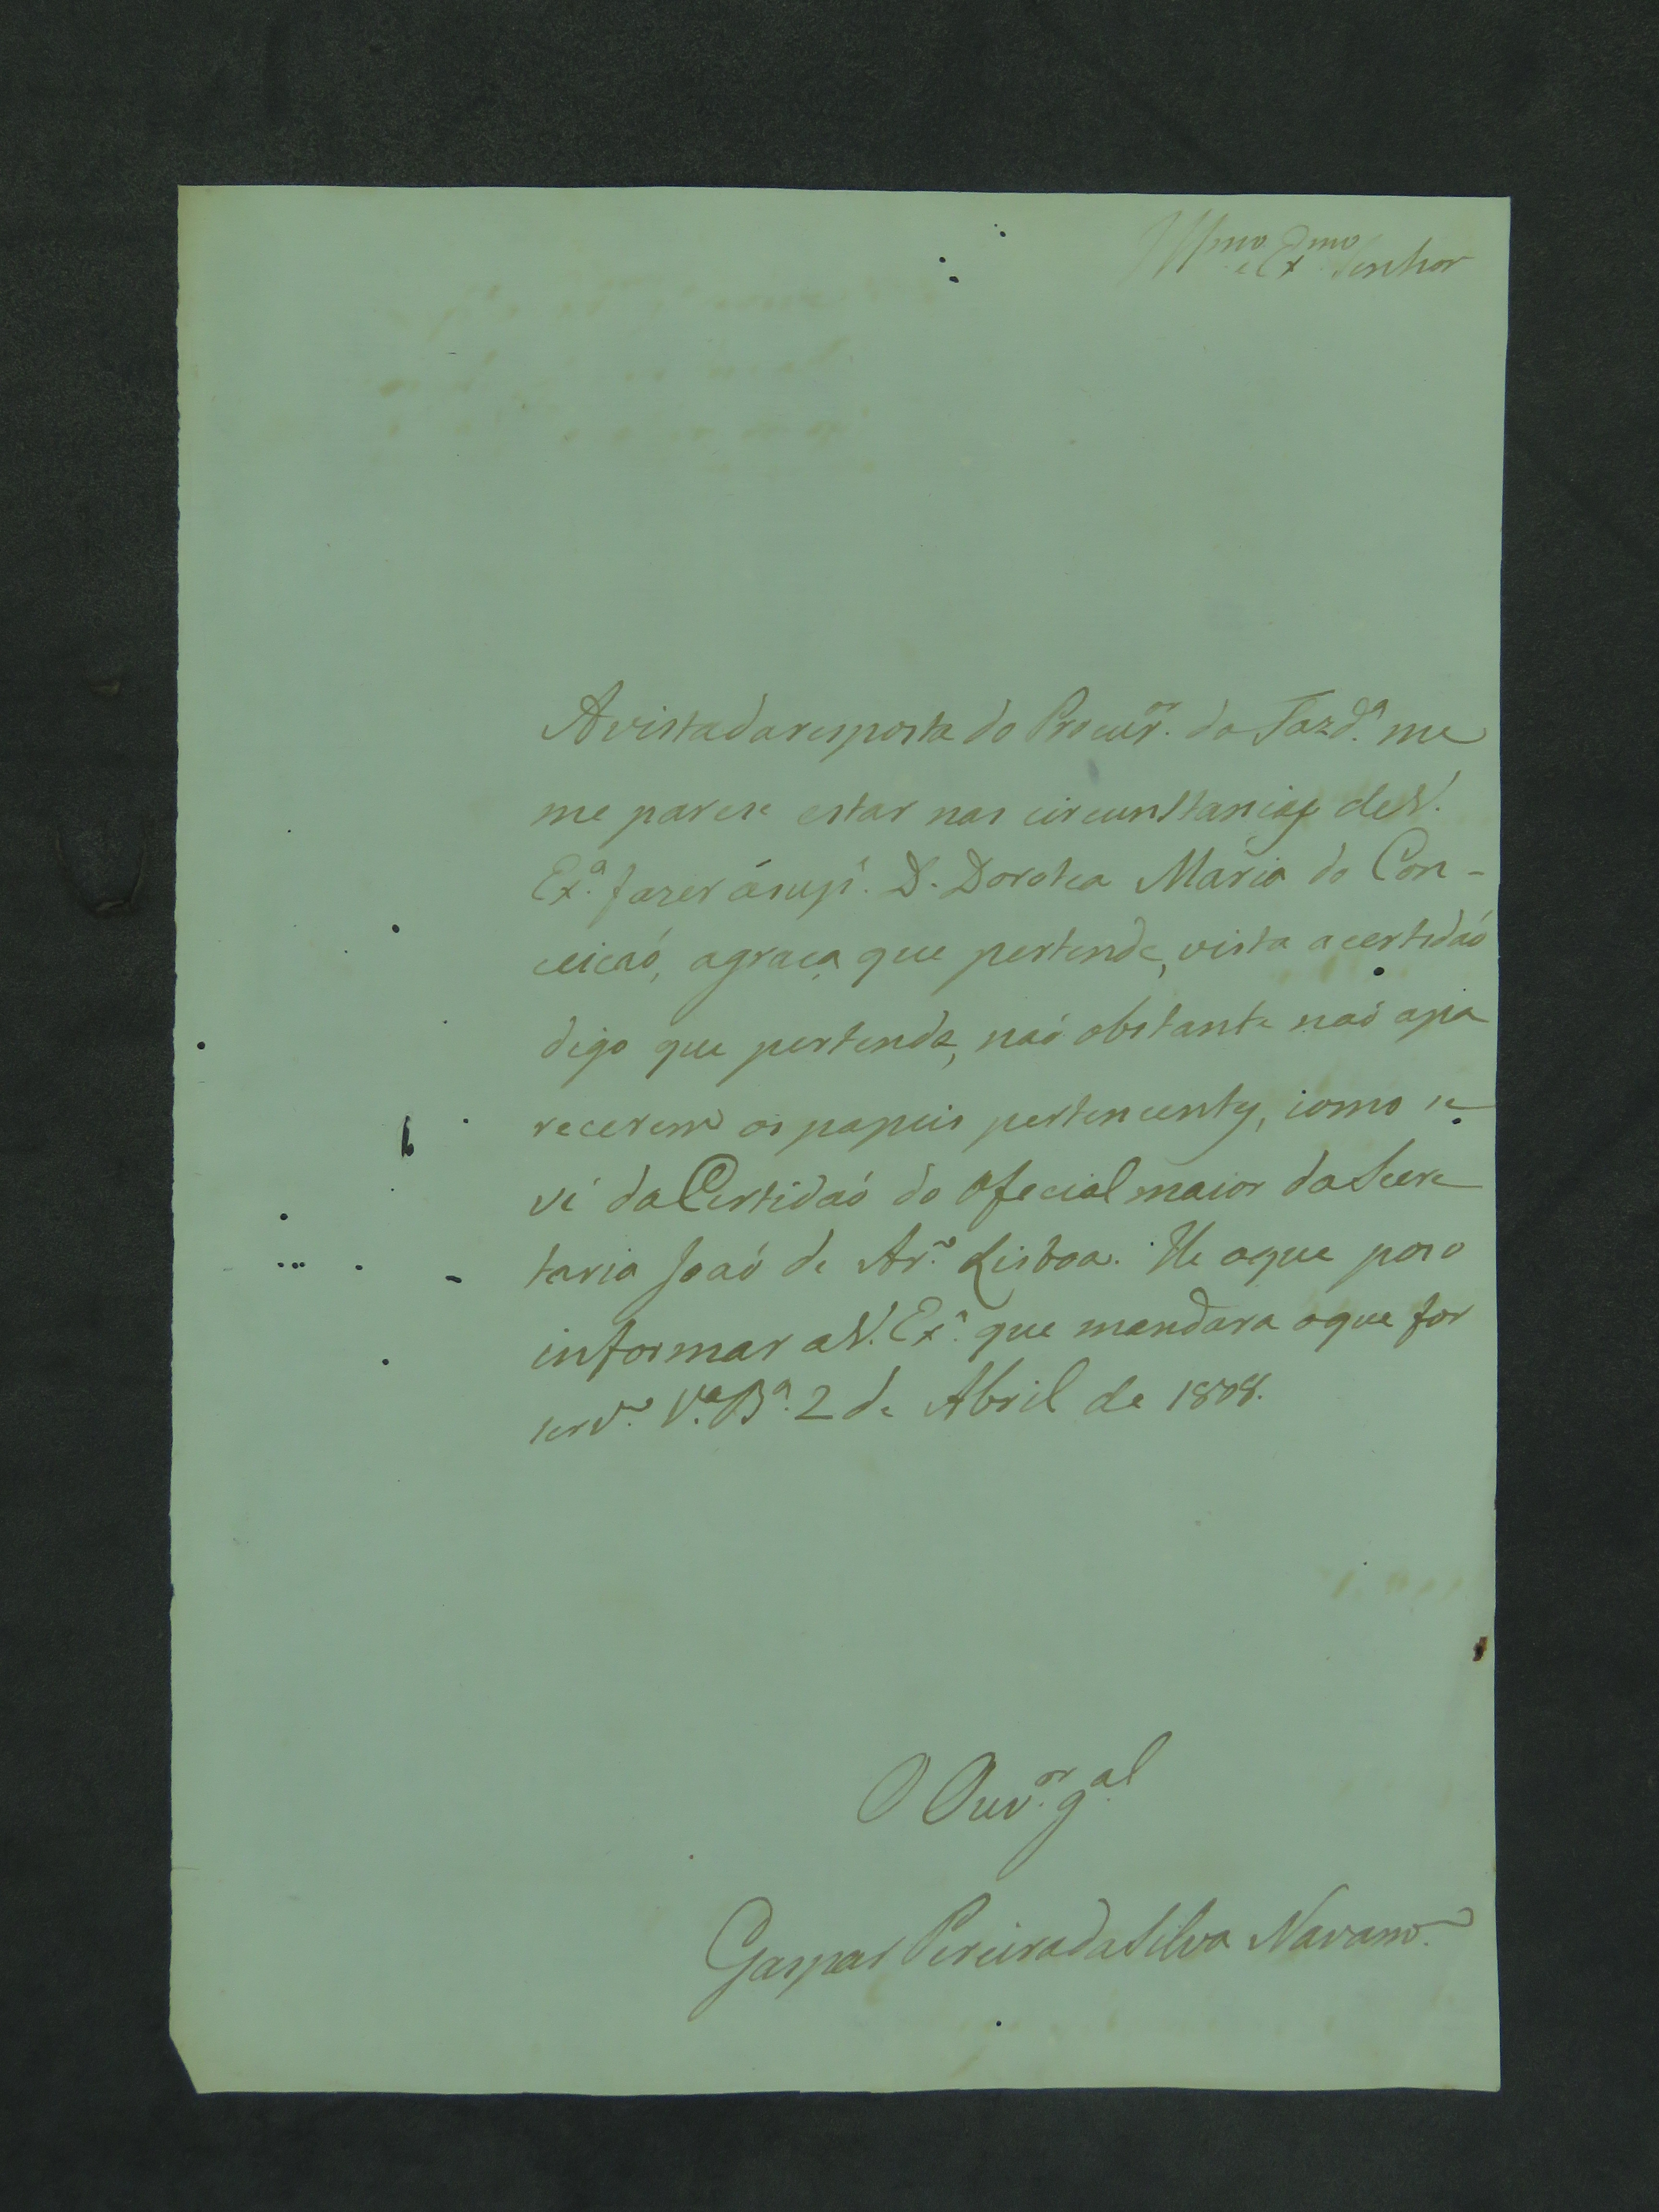 Illmo e Exmo Senhor
A vista da resposta do Procur.or da Fazd.a me
me parese estar nas circunstancias de V.
Ex.a fazer á sup.e D. Dorotea Maria da Con-
ceicaó, a graça que pertende, vista a certidaó
digo que pertende, naó obstante naó apa
recerem os papeis pertencentes, como se
vé da Certidaó do Ofecial maior da Secre
taria Joaó de Ar.o Lisboa. He o que poso
informar a V. Ex.a que mandara o que for
serv.o V.a B.a 2 de Abril de 1808.
O Ouv.or g.al
Gaspar Pereira da Silva Navarro.